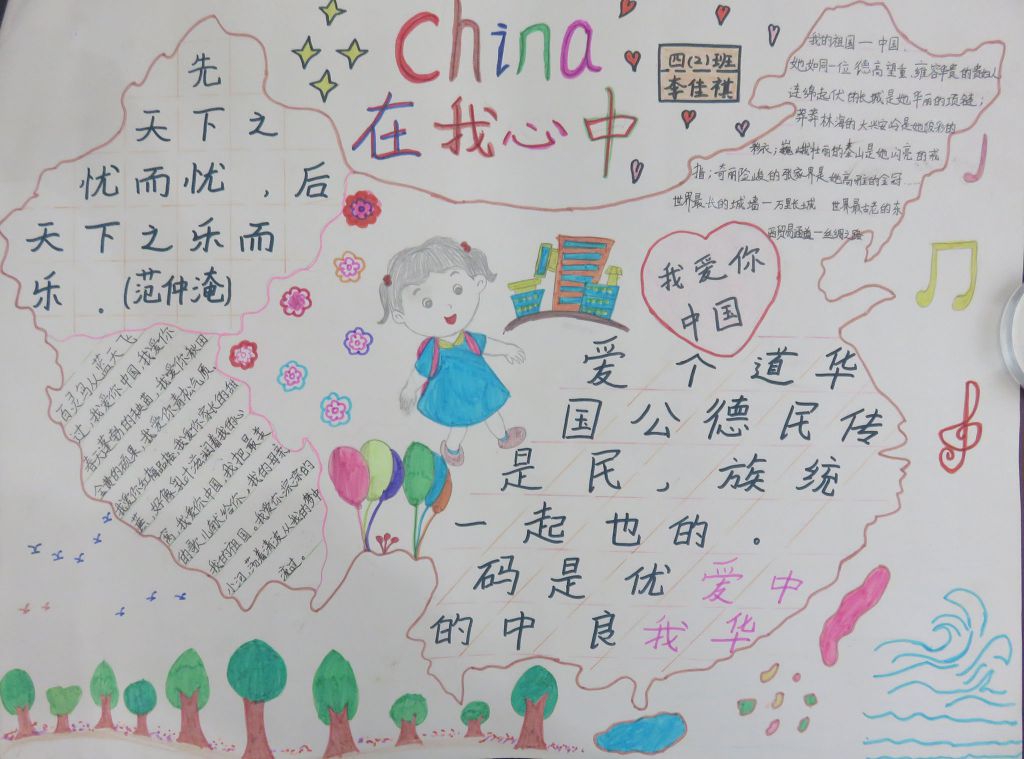 China
在我心中
四(2)班
李佳祺
先
天下之
忧而忧，后
天下之乐而
乐。(范仲淹)
我的祖国一中国，
她如同一位德高望重、雍容华贵的
连绵起伏的长城是她华丽的项链；
莽莽林海的大兴安岭是她
巍峨壮丽的泰山是她闪亮的戒
指；奇丽险峻的张家界是她高雅的金冠……
世界最长的城墙一万里长城 世界最古老的东
西贸易通道一丝绸之路
我爱你
中国
百灵鸟从蓝天飞
过，我爱你中国，我爱你
春天蓬勃的秧苗，我爱你秋田
金黄的硕果，我爱你青松气质
我爱你红梅品格，我爱你家长的甜
蔗，好像乳汁滋润着我的心
窝，我爱你中国，我把最美
的歌儿献给你，我的母亲
我的祖国。我爱你淙淙的
小河，荡着清波从我的梦中
流过。
爱国是一
个公民起码的
道德，也是中
华民族的优良
传统。爱我
中华